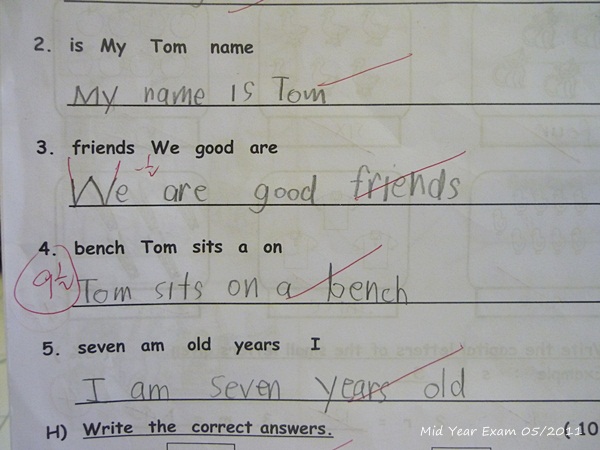 2. is My Tom name
My name is Tom
3. friends We good are
-½
We are good friends
4. bench Tom sits a on
9½
Tom sits on a bench
5. seven am old years I
I am seven years old
H) Write the correct answers. (10
Mid Year Exam 05/2011